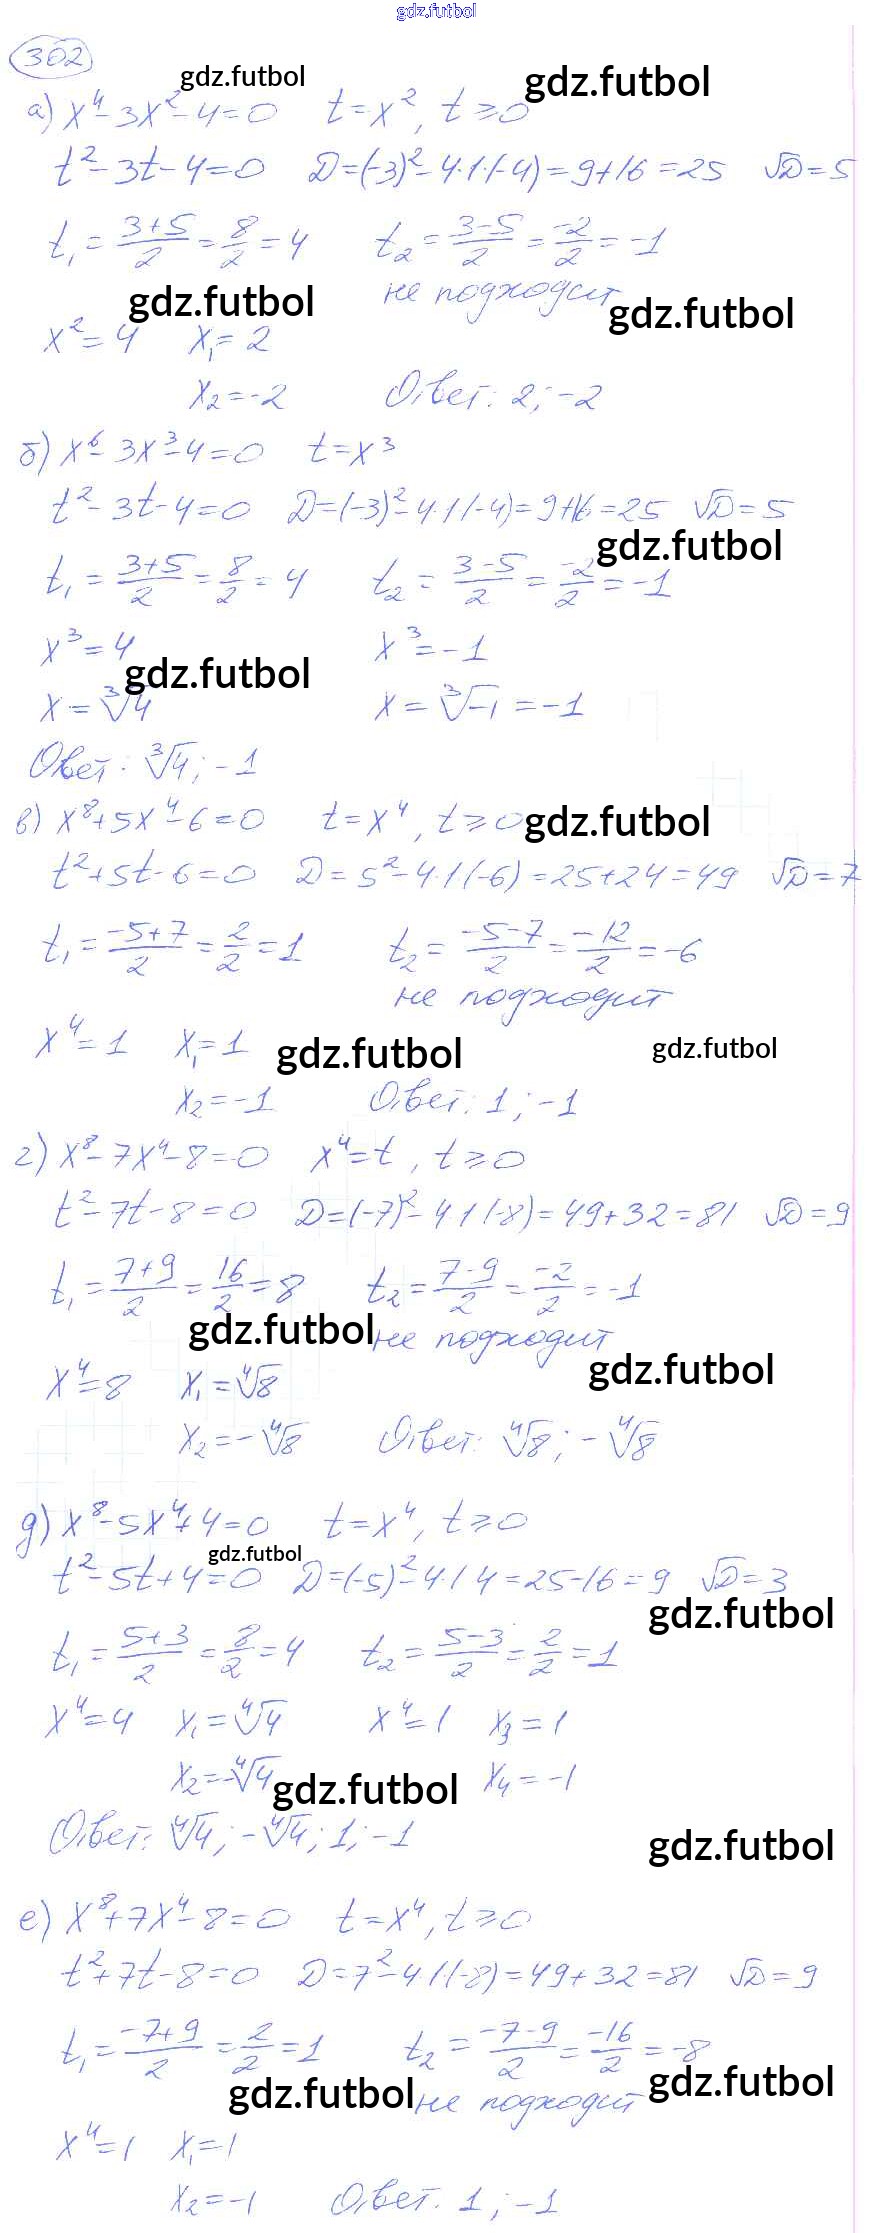 gdz.futbol
302
gdz.futbol
gdz.futbol
а) x⁴ - 3x² - 4 = 0 t = x², t ⩾ 0
t² - 3t - 4 = 0 D = (-3)² - 4·1·(-4) = 9 + 16 = 25 √D = 5
t₁ = (3+5)/2 = 8/2 = 4 t₂ = (3-5)/2 = -2/2 = -1
не подходит
gdz.futbol
gdz.futbol
x² = 4 x₁ = 2
x₂ = -2 Ответ: 2; -2
б) x⁶ - 3x³ - 4 = 0 t = x³
t² - 3t - 4 = 0 D = (-3)² - 4·1·(-4) = 9 + 16 = 25 √D = 5
gdz.futbol
t₁ = (3+5)/2 = 8/2 = 4 t₂ = (3-5)/2 = -2/2 = -1
x³ = 4 x³ = -1
gdz.futbol
x = ∛4 x = ∛-1 = -1
Ответ: ∛4; -1
в) x⁸ + 5x⁴ - 6 = 0 t = x⁴, t ⩾ 0
gdz.futbol
t² + 5t - 6 = 0 D = 5² - 4·1·(-6) = 25 + 24 = 49 √D = 7
t₁ = (-5+7)/2 = 2/2 = 1 t₂ = (-5-7)/2 = -12/2 = -6
не подходит
x⁴ = 1 x₁ = 1
gdz.futbol
gdz.futbol
x₂ = -1 Ответ: 1; -1
г) x⁸ - 7x⁴ - 8 = 0 x⁴ = t, t ⩾ 0
t² - 7t - 8 = 0 D = (-7)² - 4·1·(-8) = 49 + 32 = 81 √D = 9
t₁ = (7+9)/2 = 16/2 = 8 t₂ = (7-9)/2 = -2/2 = -1
gdz.futbol
не подходит
gdz.futbol
x⁴ = 8 x₁ = ∜8
x₂ = -∜8 Ответ: ∜8; -∜8
д) x⁸ - 5x⁴ + 4 = 0 t = x⁴, t ⩾ 0
gdz.futbol
t² - 5t + 4 = 0 D = (-5)² - 4·1·4 = 25 - 16 = 9 √D = 3
gdz.futbol
t₁ = (5+3)/2 = 8/2 = 4 t₂ = (5-3)/2 = 2/2 = 1
x⁴ = 4 x₁ = ∜4 x⁴ = 1 x₃ = 1
x₂ = -∜4 x₄ = -1
gdz.futbol
Ответ: ∜4; -∜4; 1; -1
gdz.futbol
е) x⁸ + 7x⁴ - 8 = 0 t = x⁴, t ⩾ 0
t² + 7t - 8 = 0 D = 7² - 4·1·(-8) = 49 + 32 = 81 √D = 9
t₁ = (-7+9)/2 = 2/2 = 1 t₂ = (-7-9)/2 = -16/2 = -8
gdz.futbol
gdz.futbol
не подходит
x⁴ = 1 x₁ = 1
x₂ = -1 Ответ. 1; -1